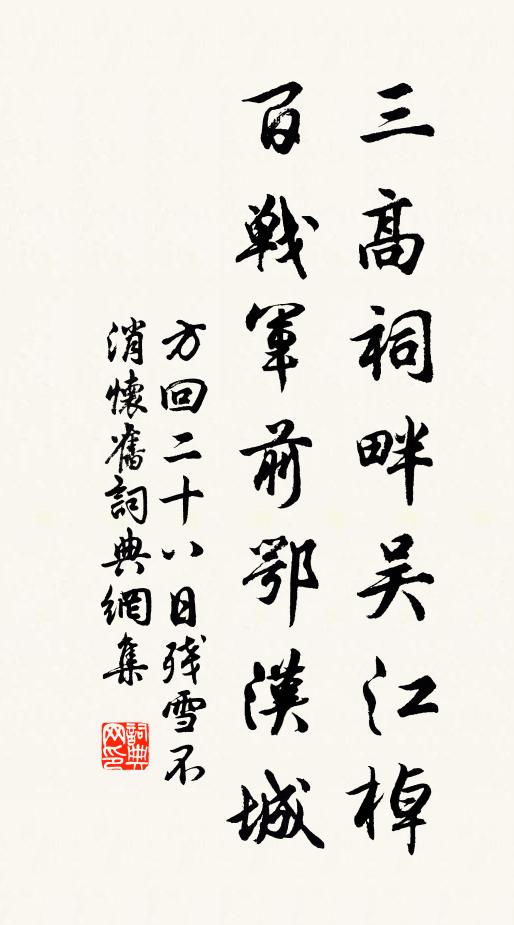 三高祠畔吴江棹
百戦軍前鄂漢城
方回二十八日残雪不
消懷舊詞典網集
詞典
网印